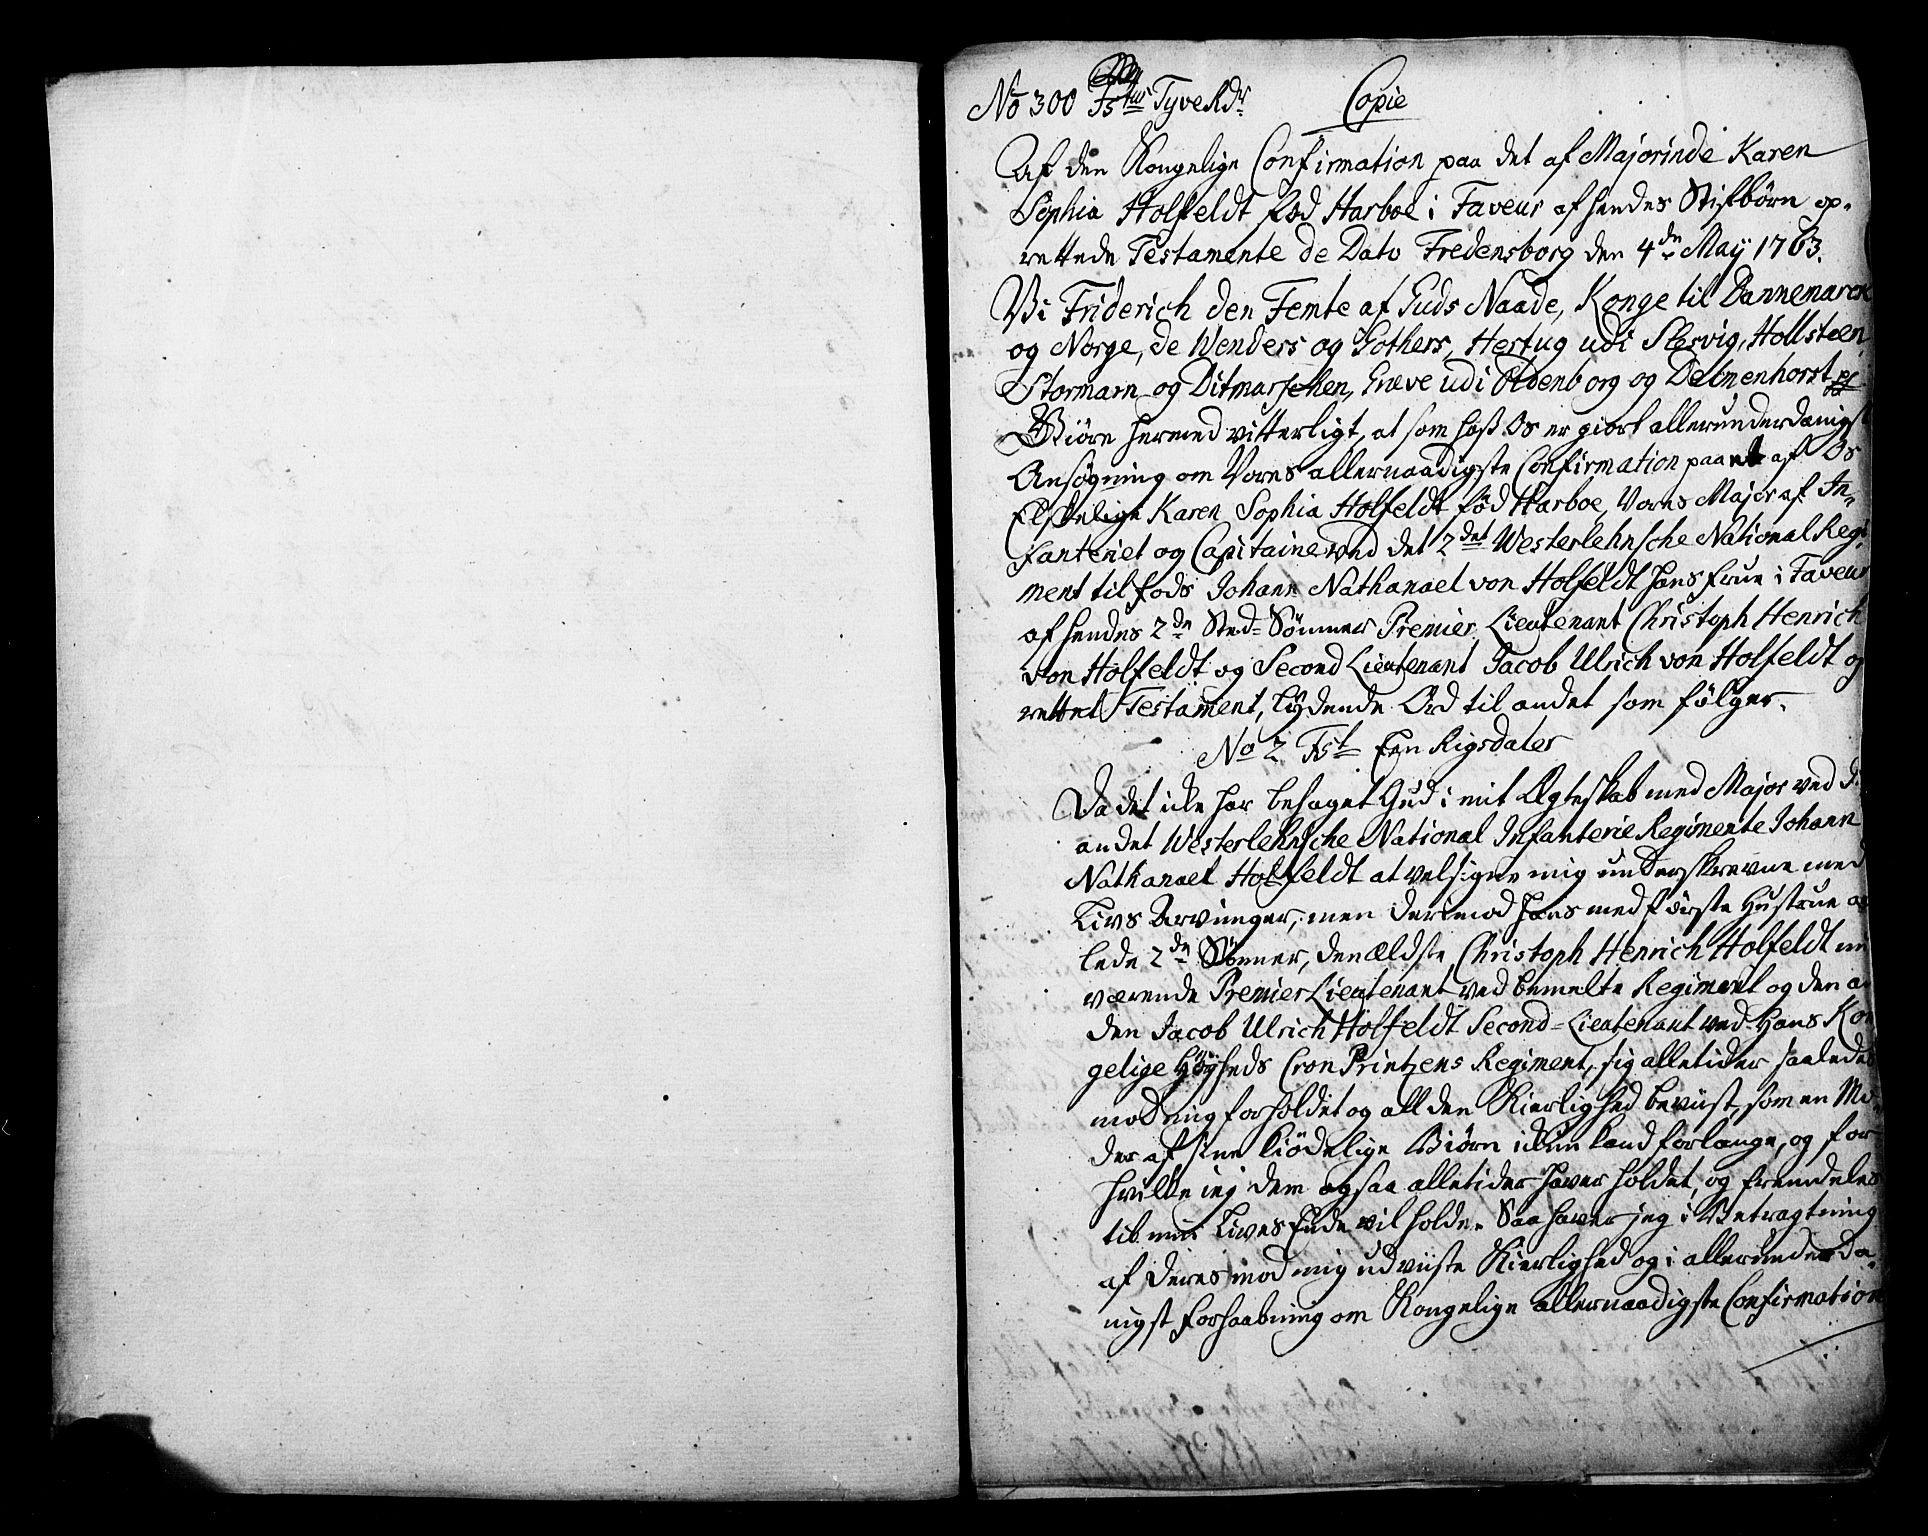 No 300 Tyve Rdr Copie
Af den Kongelige Confirmation paa det af Majorinde Karen
Sophia Holfeldt fød Harboe i Faveur af hendes Stifbörn op-
rettede Testamente de Dato Fredensborg den 4de Maÿ 1763.
Vi Friderich den Femte af Guds Naade, Konge til Dannemarck
og Norge, de Wenders og Gothers, Hertug udi Slesvig, Hollsteen,
Stormarn og Ditmarschen, Greve udi Oldenborg og Delmenhorst
Giöre hermed vitterligt, at som hoss Os er giort allerunderdanigst
Ansögning om Vores allernaadigste Confirmation paa et af Os
Elskelige Karen Sophia Holfeldt föd Harboe, Vores Major af In-
fanteriet og Capitaine ved det 2det Westerlehnsche National Regi-
ment til fods Johann Nathanael von Holfeldt hans frue i Faveur
af hendes 2de Sted-Sönner Premier Lieutenant Christoph Henrich
von Holfeldt og Second Lieutenant Jacob Ulrich von Holfeldt op
rettet Testament, lydende Ord til andet som fölger.
No 2 Een Rigsdaler
Da det icke har behaget Gud i mit Ægteskab med Major ved d
andet Westerlehnsche National Infanterie Regimente Johann
Nathanael Holfeldt at velsigne mig underskrevne med
Livs Arvinger, men derimod hans med förste Hustrue av
lede 2de Sönner, den ældste Christoph Henrich Holfeldt nu
værende Premier Lieutenant ved bemelte Regiment og den an
den Jacob Ulrich Holfeldt Second-Lieutenant ved Hans Kon
gelige Höyheds Cron Printzens Regiment, sig alletider saaledes
mod mig forholdet og all den Kierlighed beviist, som en Mo-
der af sine kiödelige Börn kand forlange, og for
hvilke jeg dem ogsaa alletider haver holdet, og fremdeles
til min Lives Ende vil holde. Saa haver jeg i Betragtning
af deres mod mig udviiste Kierlighed og i allerunderda-
nigst forhaabning om Kongelige allernaadigste Confirmation